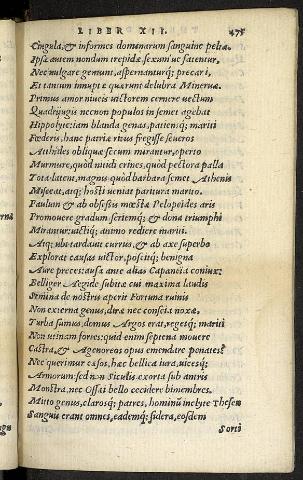 LIBER XII. 475
Cingula, & informes dominarum sanguine peltæ.
Ipsæ autem nondum trepidæ sexum'ue fatentur,
Nec uulgare gemunt, aspernanturq; precari,
Et tantum innuptæ quærunt delubra Mineruæ.
Primus amor niueis uictorem cernere uectum
Quadrijugis nec non populos in semet agebat
Hippolyte, iam blanda genas, patiensq; mariti
Fœderis, hanc patriæ ritus fregisse seueros
Atthides oblique secum mirantur, operto
Murmure, quòd nitidi crines, quòd pectora palla
Tota latent, magnis quòd barbara semet Athenis
Misceat, atq; hosti ueniat paritura marito.
Paulum & ab obsessis mœstæ Pelopeides aris
Promouere gradum seriemq; & dona triumphi
Mirantur: uictiq; animo rediere mariti.
Atq; ubi tardauit currus, & ab axe superbo
Explorat causas uictor, poscitq; benigna
Aure preces: ausa ante alias Capaneia coniux:
Belliger Aegide subitæ cui maxima laudis
Semina de nostris aperit Fortuna ruinis
Non externa genus, diræ nec conscia noxæ
Turba sumus, domus Argos erat, regesq; mariti
Non utinam fortes: quid enim septena mouere
Castra, & Agenoreos opus emendare penateis?
Nec querimur cæsos, hæc bellica iura, uicesq;
Armorum: sed non Siculis exorta sub antris
Monstra, nec Ossæi bello cecidere bimembres.
Mitto genus, clarosq; patres, hominũ inclyte Theseu
Sanguis erant omnes, eademq; sidera, eosdem
Sortiti